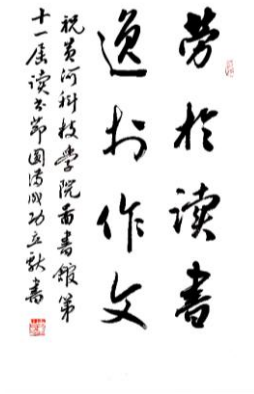 劳于读书
逸于作文
祝黄河科技学院图书馆第
十一届读书节圆满成功立献书